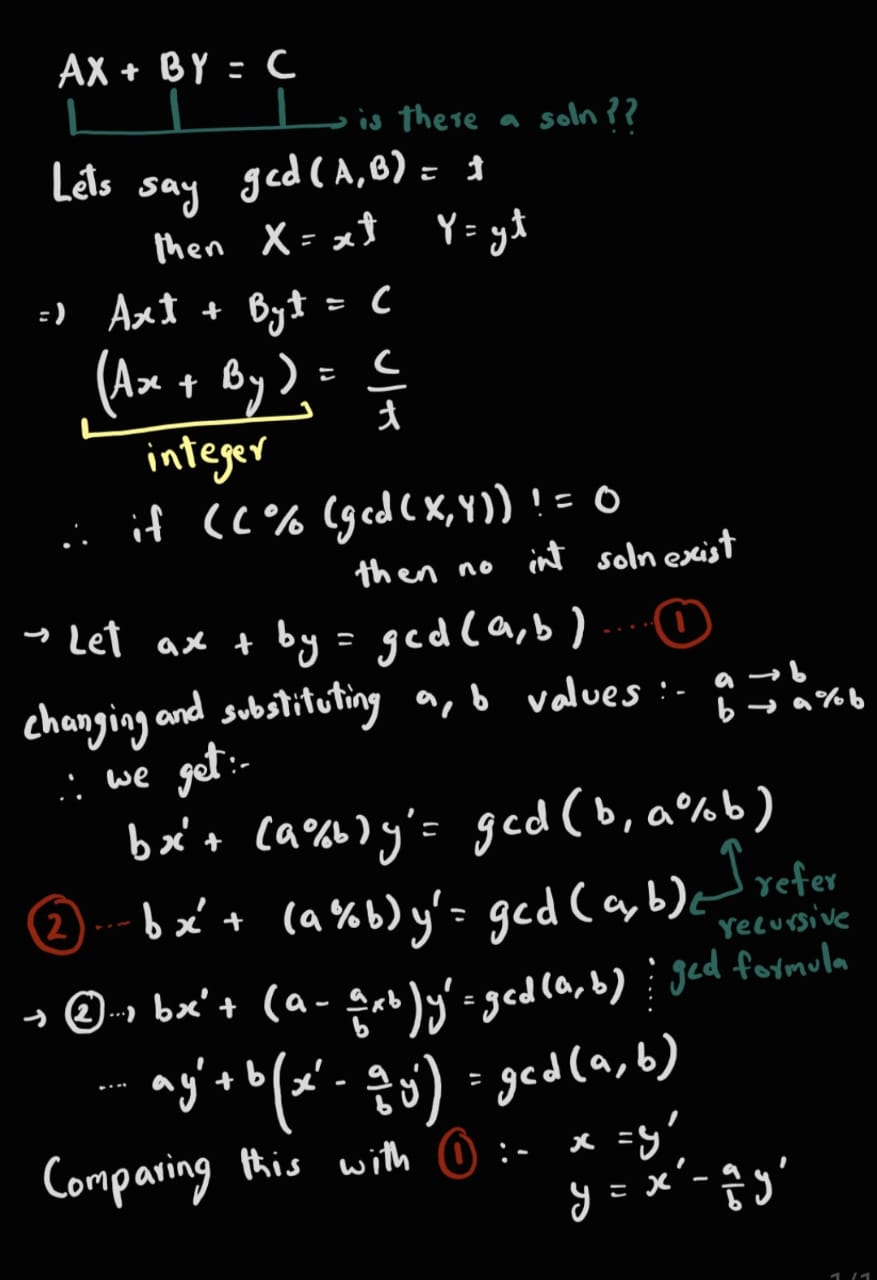 AX + BY = C
→ is there a soln??
Lets say gcd(A,B) = t
then X = xt Y = yt
=) Axt + Byt = C
(Ax + By) = C/t
integer
∴ if ((C % (gcd(X,Y)) != 0
then no int soln exist
→ Let ax + by = gcd(a,b) ..... ①
changing and substituting a, b values :- a → b
b → a%b
∴ we get:-
bx' + (a%b)y' = gcd(b, a%b)
② ... bx' + (a%b)y' = gcd(a,b) ← refer
recursive
gcd formula
→ ② ...→ bx' + (a - a/b×b)y' = gcd(a,b)
.... ay' + b(x' - a/b y') = gcd(a,b)
Comparing this with ① :- x = y'
y = x' - a/b y'